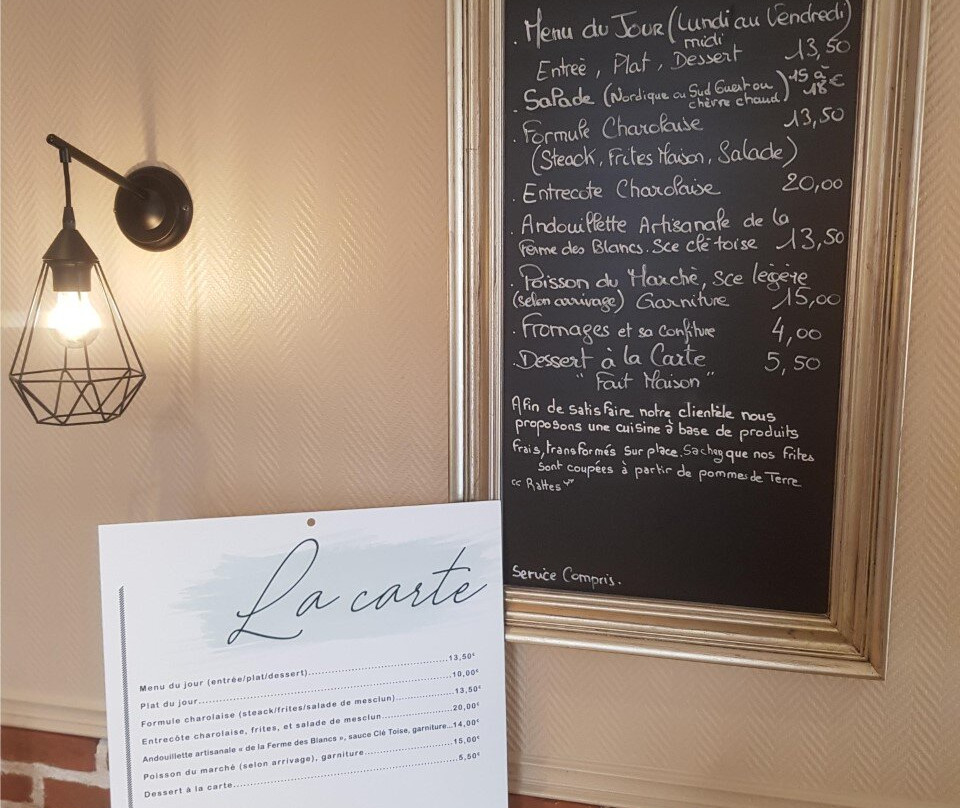 . Menu du Jour (Lundi au Vendredi)
midi
Entreè, Plat, Dessert 13,50
. Salade (Nordique ou Sud Ouest ou chèvre chaud) 15 à 18€
. Formule Charolaise 13,50
(Steack, Frites Maison, Salade)
. Entrecote Charolaise 20,00
. Andouillette Artisanale de la
Ferme des Blancs. Sce clé toise 13,50
. Poisson du Marchè, sce légère
(selon arrivage) Garniture 15,00
. Fromages et sa confiture 4,00
. Dessert à la Carte 5,50
" Fait Maison "
Afin de satisfaire notre clientèle nous
proposons une cuisine à base de produits
frais, transformés sur place. Sachez que nos frites
sont coupées à partir de pommes de Terre
"Rattes"
Service Compris.
La carte
Menu du jour (entrée/plat/dessert)....13,50€
Plat du jour....10,00€
Formule charolaise (steack/frites/salade de mesclun)....13,50€
Entrecôte charolaise, frites, et salade de mesclun....20,00€
Andouillette artisanale « de la Ferme des Blancs », sauce Clé Toise, garniture...14,00€
Poisson du marché (selon arrivage), garniture....15,00€
Dessert à la carte....5,50€